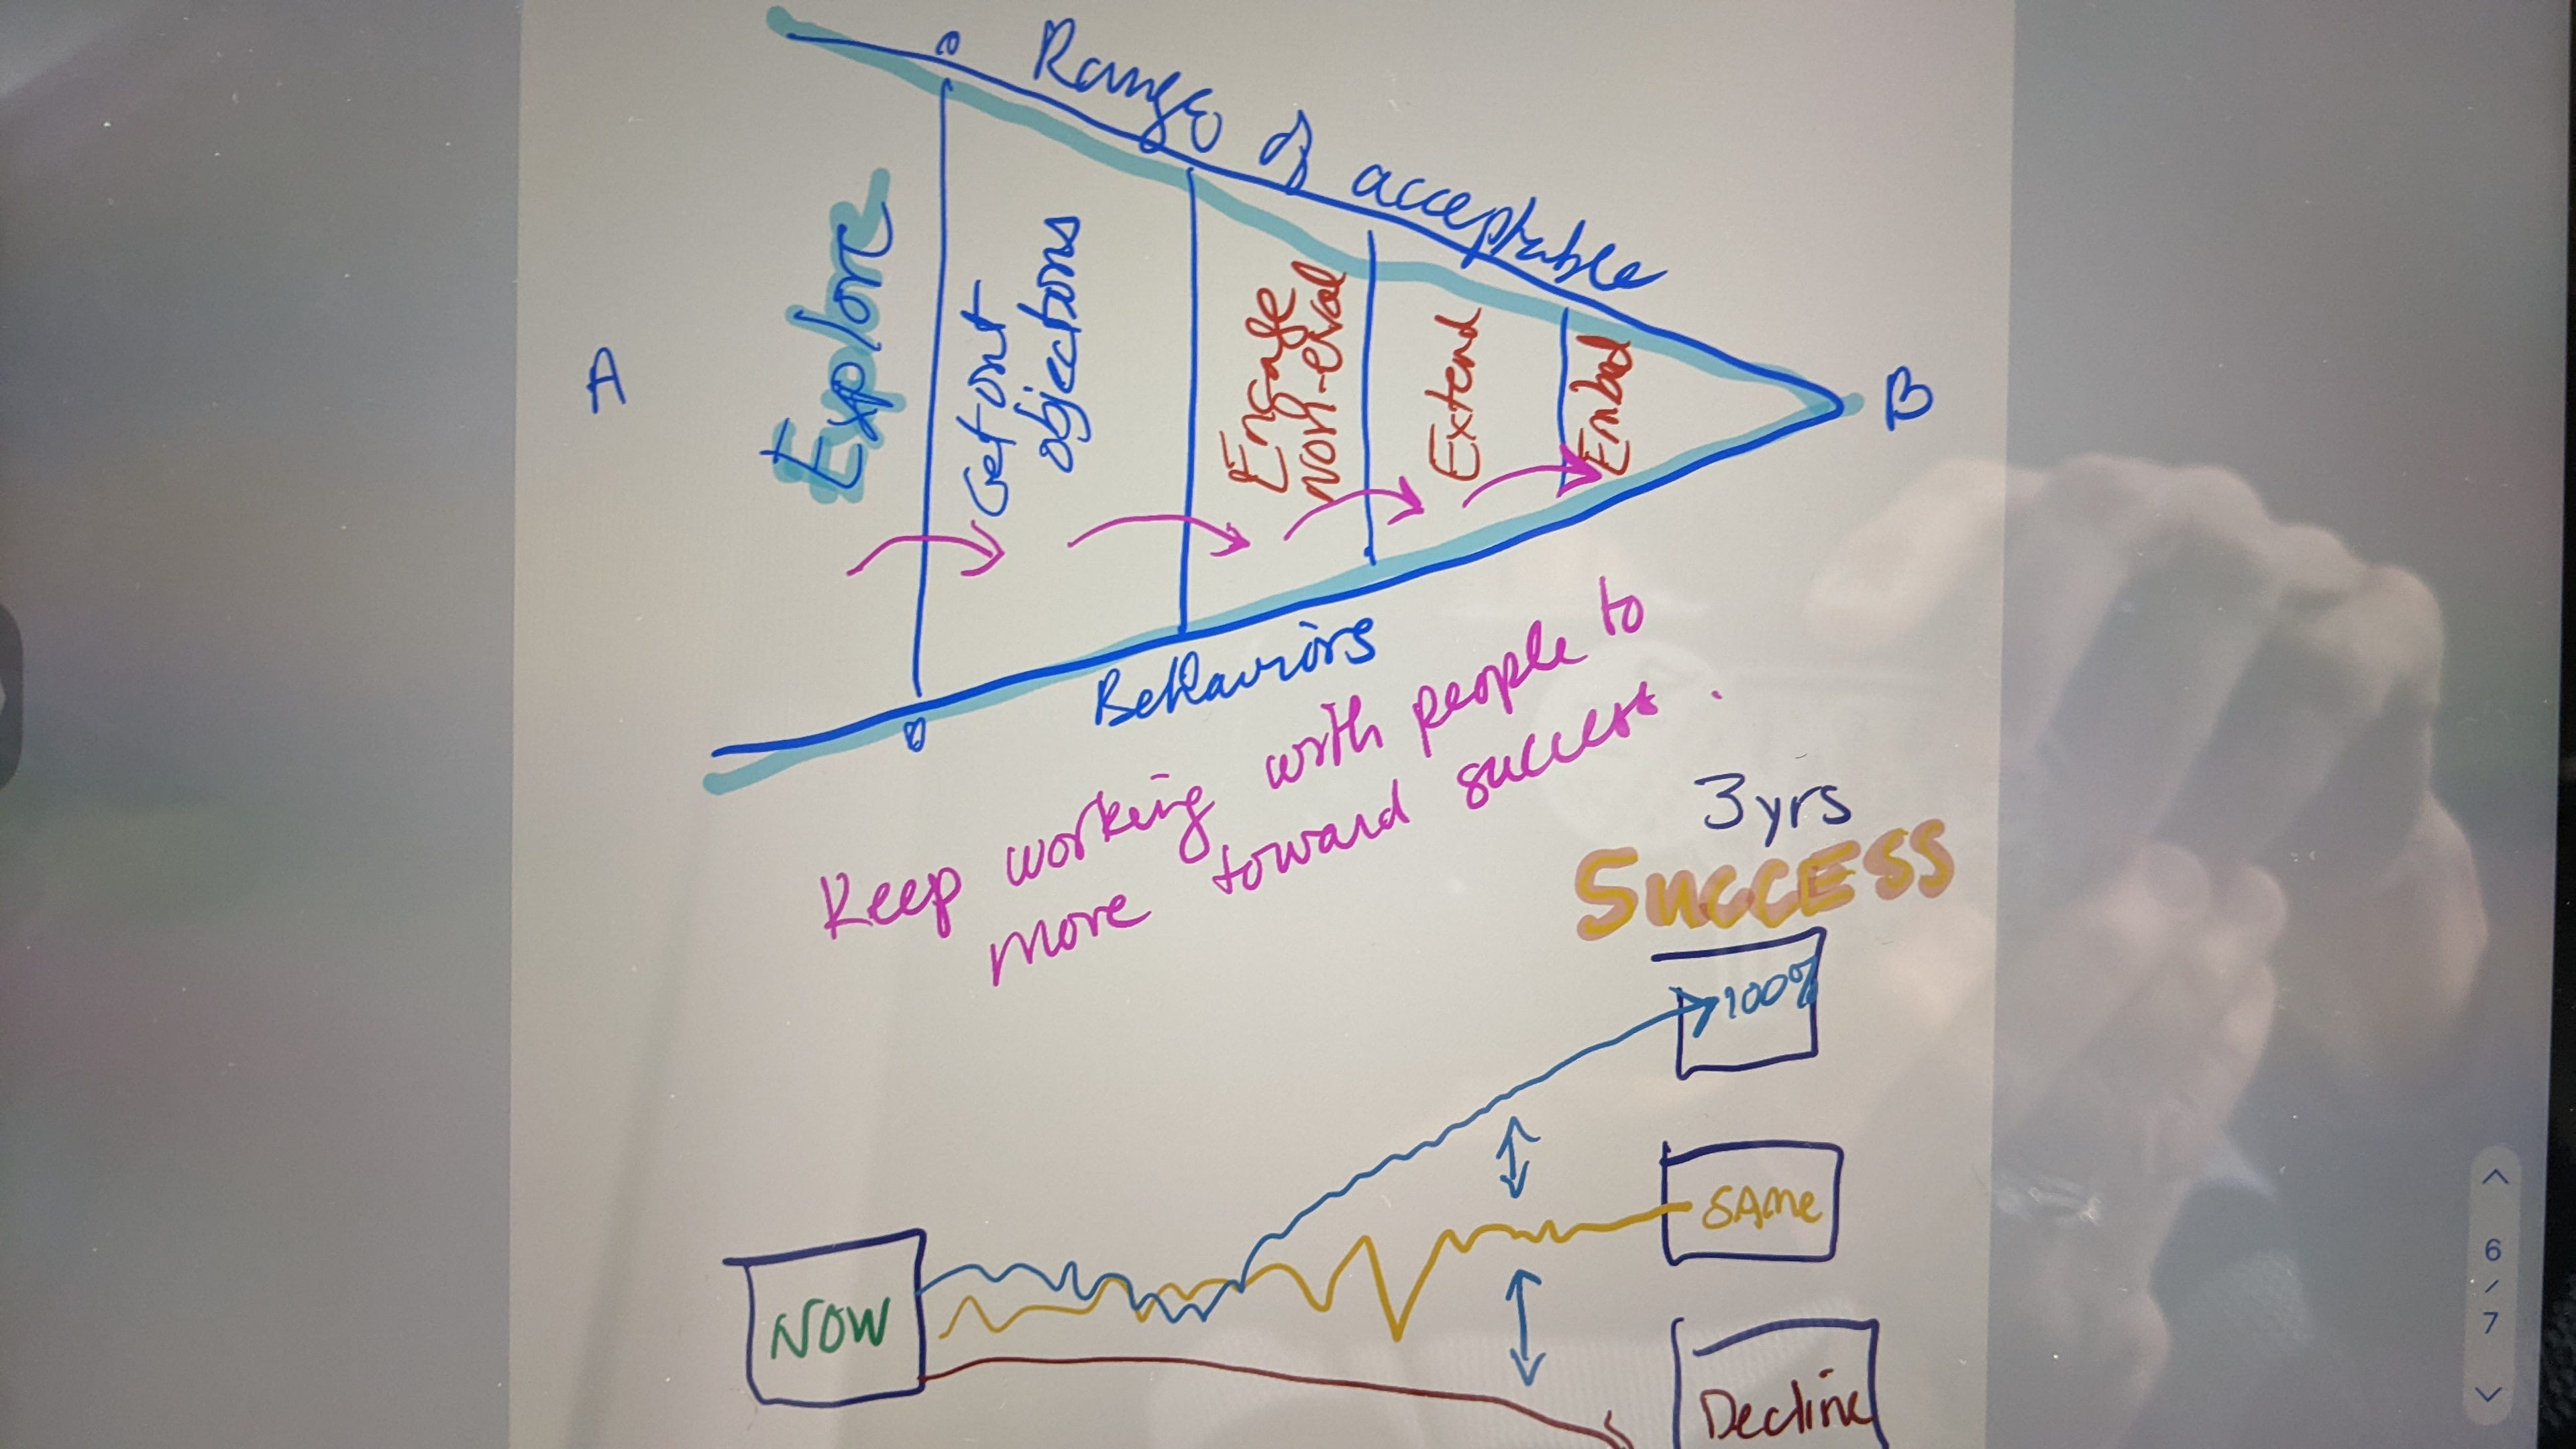 Range of acceptable
A
Explore
Get out
objections
Engage
non-eval
Extend
Embed
B
Behaviors
Keep working with people to
more toward success.
3 yrs
SUCCESS
100%
SAME
NOW
Decline
6
/
7